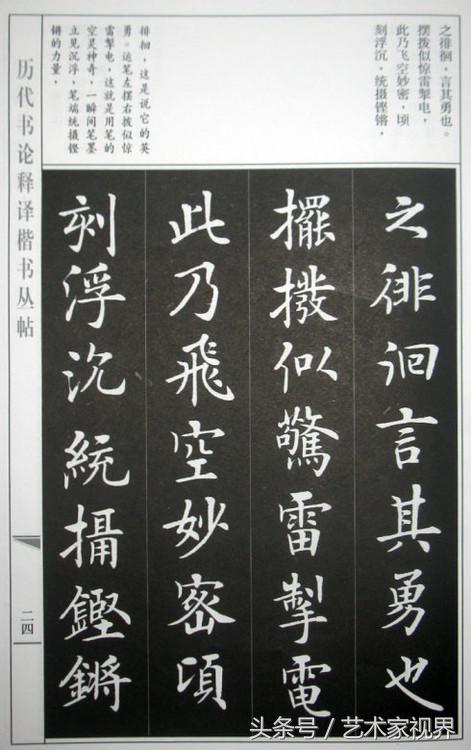 之徘徊，言其勇也。
摆拨似惊雷掣电，
此乃飞空妙密，顷
刻浮沉，统摄铿锵，
徘徊，这是说它的英
勇。运笔左摆右拨似惊
雷掣电，这就是用笔的
空灵神奇，一瞬间笔墨
立见沉浮，笔端统摄铿
锵的力量，
之徘徊言其勇也
擺撥似驚雷掣電
此乃飛空妙密頃
刻浮沉統攝鏗鏘
历代书论释译楷书丛帖
二四
头条号／艺术家视界